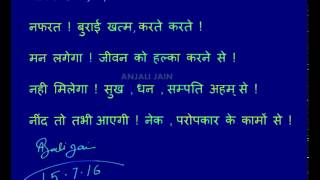 नफरत ! बुराई खत्म , करते करते !
मन लगेगा ! जीवन को हल्का करने से !
ANJALI JAIN
नही मिलेगा ! सुख , धन , सम्पति अहम् से !
नींद तो तभी आएगी ! नेक , परोपकार के कामों से !
Anjali jain
15.7.16